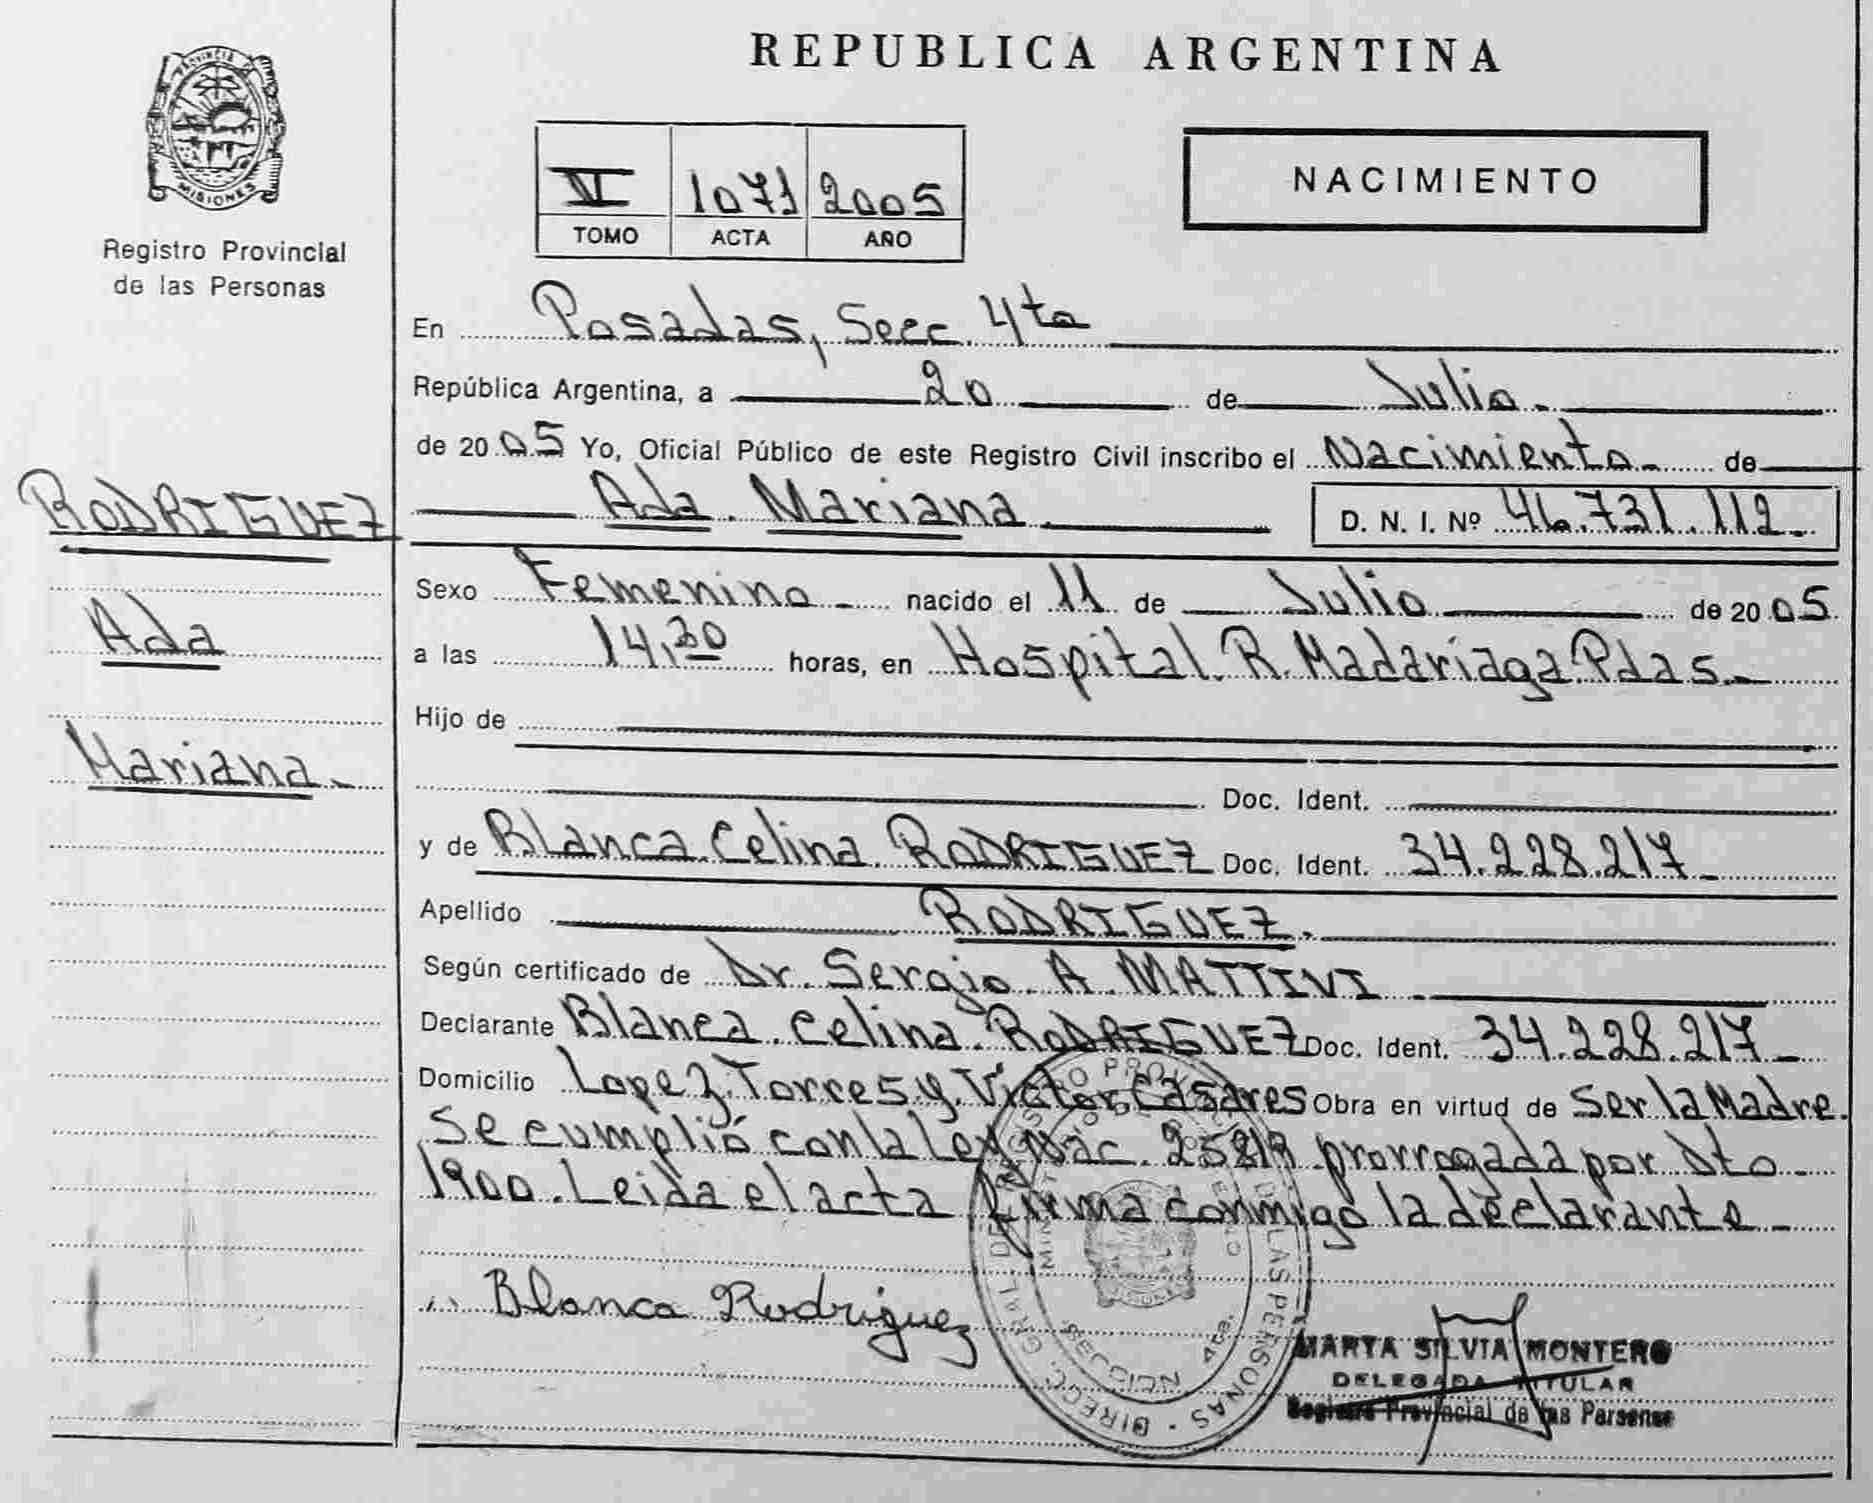 REPUBLICA ARGENTINA
PROVINCIA DE
MISIONES
Registro Provincial
de las Personas
1071 2005
TOMO ACTA AÑO
NACIMIENTO
En Posadas, Secc. 4ta
República Argentina, a 20 de Julio.
de 2005 Yo, Oficial Público de este Registro Civil inscribo el Nacimiento de
RODRIGUEZ
Ada Mariana D. N. I. Nº 46.731.112
Sexo Femenino nacido el 11 de Julio de 2005
Ada
a las 14,30 horas, en Hospital R. Madariaga Pdas.
Hijo de
Mariana
Doc. Ident.
y de Blanca Celina RODRIGUEZ Doc. Ident. 34.228.217
Apellido RODRIGUEZ.
Según certificado de Dr. Sergio A. MATTIVI
Declarante Blanca Celina RODRIGUEZ Doc. Ident. 34.228.217
Domicilio Lopez Torres y Victor Casares Obra en virtud de Ser la Madre.
Se cumplió con la Ley Nac. 25819 prorrogada por Dto
1900. Leida el acta firma conmigo la declarante
Blanca Rodriguez
DIRECC. GRAL. DEL REGISTRO PROVINCIAL DE LAS PERSONAS
SECCION 4ta.
MISIONES
MARTA SILVIA MONTERO
DELEGADA TITULAR
Registro Provincial de las Personas